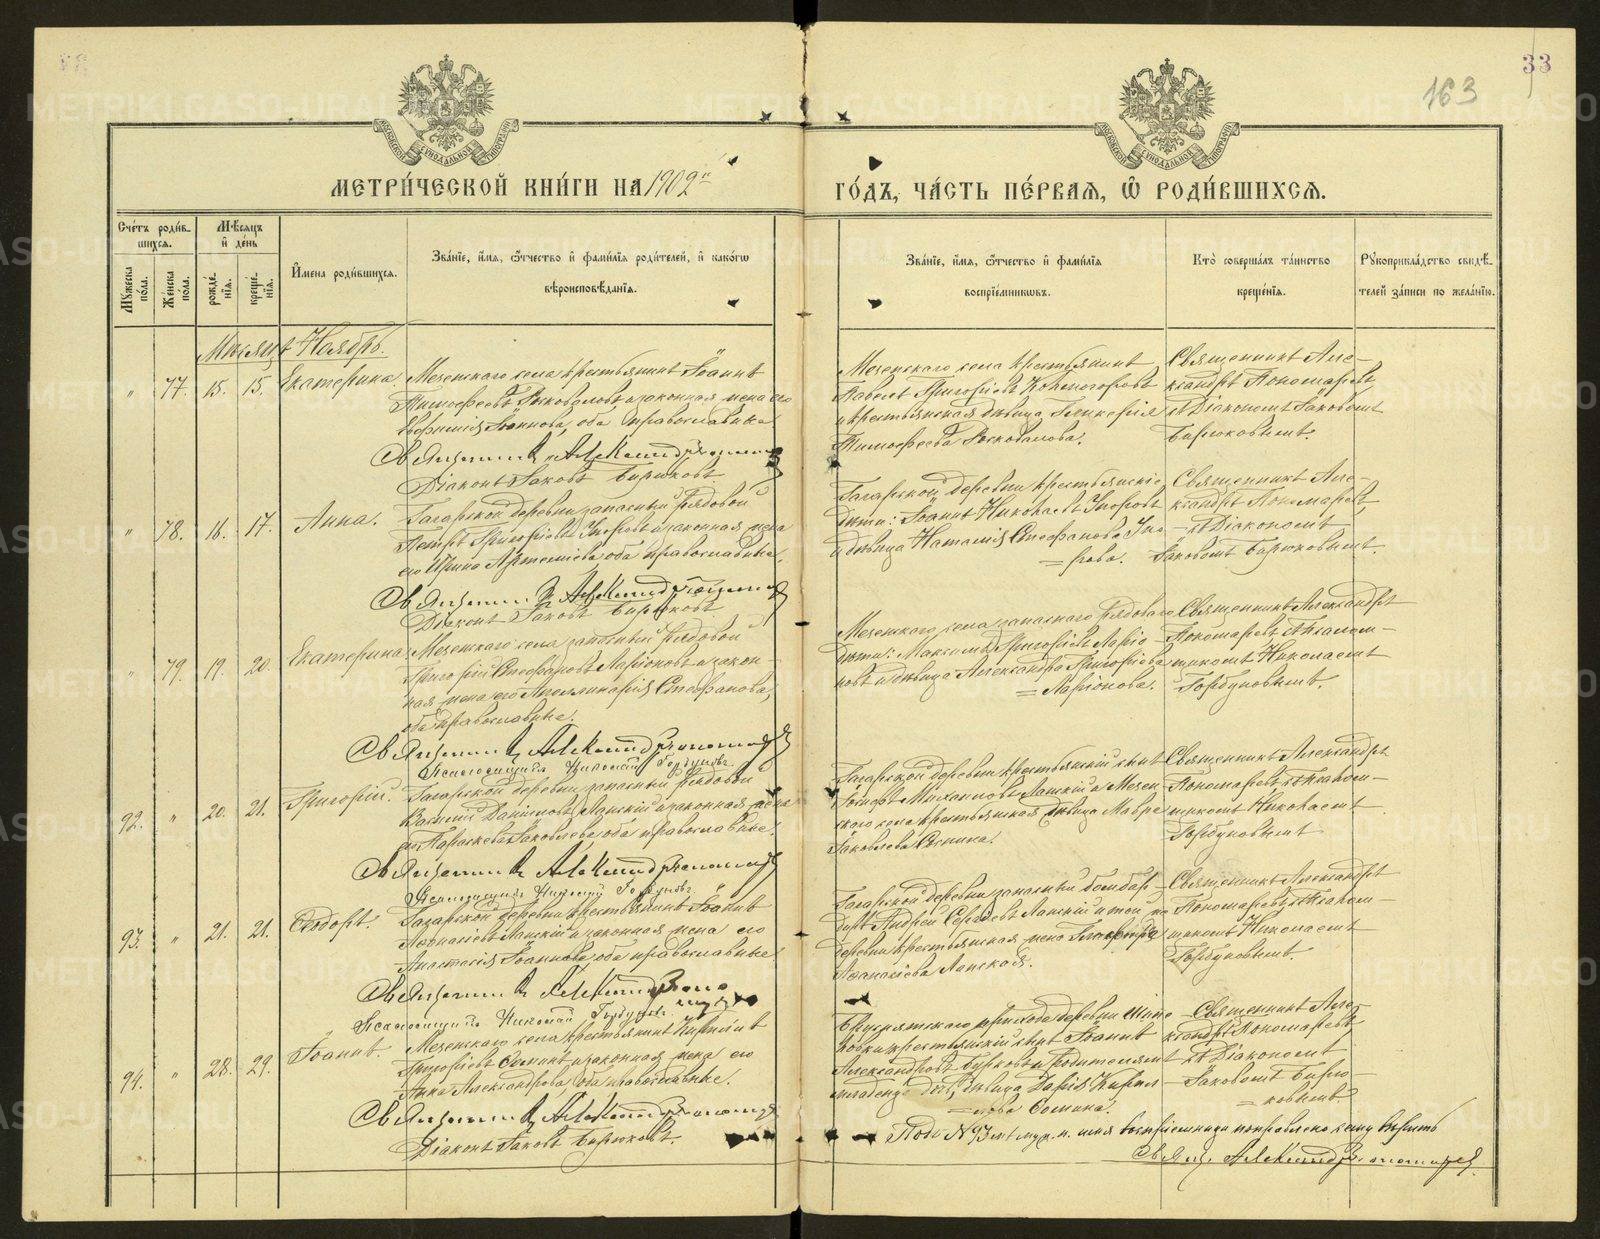 33
163
МЕТРИ́ЧЕСКОЙ КНИ́ГИ НА 1902 й
ГО́ДЪ, ЧА́СТЬ ПЕ́РВАЯ, Ѽ РОДИ́ВШИХСЯ.
Сче́тъ роди́в-
шихся.
Мѣ́сяцъ
и҆ де́нь
Му́жеска
по́ла.
Же́нска
по́ла.
рожде́-
нїя.
креще́-
нїя.
И҆мена роди́вшихся.
Зва́нїе, и҆́мя, ѻ҆́тчество и҆ фами́лїя роди́телей, и҆ како́гѡ
вѣроисповѣ́данїя.
Зва́нїе, и҆́мя, ѻ҆́тчество и҆ фами́лїя
воспрїе́мникѡвъ.
Кто̀ соверша́лъ та́инство
креще́нїя.
Рꙋкоприкла́дство свидѣ́-
телей за́писи по жела́нїю.
Мѣсяцъ Ноябрь.
" 77. 15. 15. Екатерина.
Мезенскаго села крестьянинъ Іоаннъ
Тимофеевъ и законная жена его
Іоаннова, оба православные
Священникъ Александръ Пономаревъ
Діаконъ Іаковъ Бирюковъ
Мезенскаго села крестьянинъ
Павелъ Григоріевъ
и крестьянская дѣвица Гликерія
Тимофеева
Священникъ Але-
ксандръ Пономаревъ
съ Діакономъ Іаковомъ
Бирюковымъ.
" 78. 16. 17. Анна.
Гагарской деревни запасный рядовой
Петръ Григоріевъ и законная жена
его Ирина Артемiева, оба православные.
Священникъ Александръ Пономаревъ
Діаконъ Іаковъ Бирюковъ
Гагарской деревни крестьянскіе
дѣти: Іоаннъ Николаевъ
и дѣвица Наталія Стефанова
Священникъ Але-
ксандръ Пономаревъ,
съ Діакономъ
Іаковомъ Бирюковымъ.
" 79. 19. 20. Екатерина.
Мезенскаго села запасный рядовой
Григорій Стефановъ Ларіоновъ и закон-
ная жена его Аполлинарія Стефанова,
оба православные.
Священникъ Александръ Пономаревъ
Псаломщикъ Николай Горбуновъ
Мезенскаго села запаснаго рядоваго
дѣти: Максимъ Григоріевъ Ларіо-
новъ и дѣвица Александра Григоріева
Ларіонова.
Священникъ Александръ
Пономаревъ съ Псалом-
щикомъ Николаемъ
Горбуновымъ.
92. " 20. 21. Григорій.
Гагарской деревни запасный рядовой
Василій Даниловъ Ланскій и законная жена
его Параскева Іаковлева, оба православные.
Священникъ Александръ Пономаревъ
Псаломщикъ Николай Горбуновъ
Гагарской деревни крестьянскій сынъ
Михаиловъ Ланскій и Мезен-
скаго села крестьянская дѣвица Мавра
Іаковлева Сомина.
Священникъ Александръ
Пономаревъ, съ Псалом-
щикомъ Николаемъ
Горбуновымъ
93. " 21. 21. Ѳеодоръ.
Гагарской деревни крестьянинъ Іоаннъ
Аѳанасіевъ Ланскій и законная жена его
Анастасія Іоаннова, оба православные
Священникъ Александръ Поно-
маревъ
Псаломщикъ Николай Горбуновъ
Гагарской деревни запасный бомбар-
диръ Андрей Сергѣевъ Ланскій и той же
деревни крестьянская жена
Аѳанасіева Ланская.
Священникъ Александръ
Пономаревъ, съ Псалом-
щикомъ Николаемъ
Горбуновымъ.
94. " 28. 29. Іоаннъ.
Мезенскаго села крестьянинъ Кириллъ
Григоріевъ Соминъ и законная жена его
Анна Александрова, оба православные.
Священникъ Александръ Пономаревъ
Діаконъ Іаковъ Бирюковъ.
прихода деревни
крестьянскій сынъ Іоаннъ
Александровъ Бурковъ и родителямъ
младенца дочь, дѣвица Дарія Кирил-
лова Сомина.
Священникъ Але-
ксандръ Пономаревъ
съ Діакономъ
Іаковомъ Бирю-
ковымъ
Подъ № 93 муж. п. имя воспріемницы поправлено вѣрить
Священ. Александръ Пономаревъ.